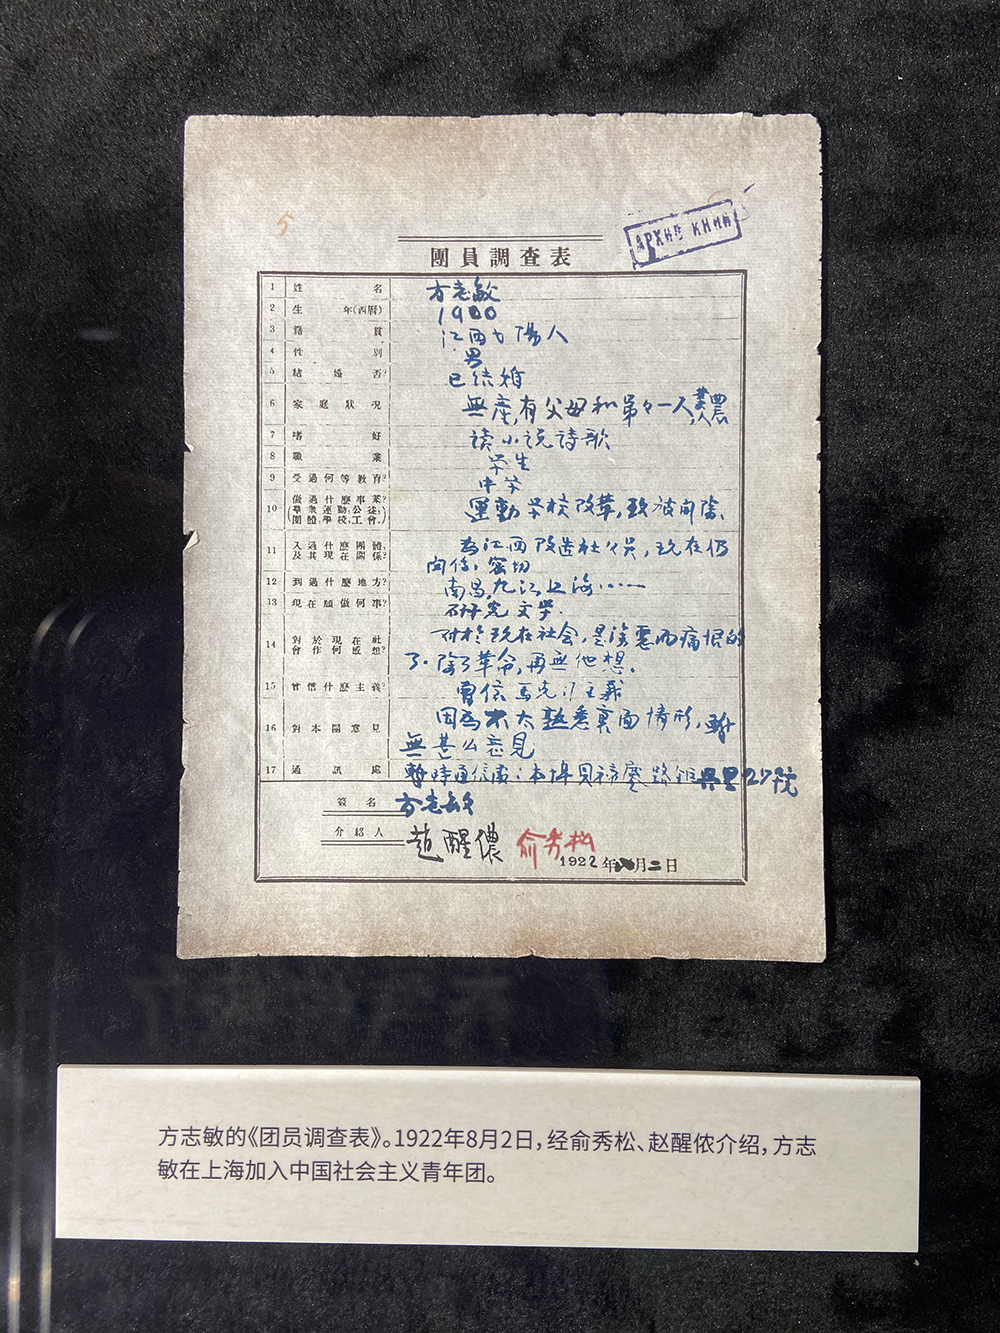 5
АРХИВ КИМИ
團員調查表
1 姓名 方志敏
2 生年(西曆) 1900
3 籍貫 江西弋陽人
4 性別 男
5 結婚否? 已结婚
6 家庭狀况 無產,有父母和弟々一人,業農
7 嗜好 读小说诗歌
8 職業 学生
9 受過何等教育? 中学
10 做過什麼事業? (畢業運動,公徒,團體,學校,工會.) 運動学校改革,致被開除.
11 入過什麼團體,及其現在關係? 為江西改造社々員,现在仍
関係密切
12 到過什麼地方? 南昌,九江上海……
13 現在願做何事? 研究文学.
14 對於現在社會作何感想? 对於现在社会,是深惡而痛恨的
了.除了革命,再無他想.
15 曾信什麼主義? 曾信马克司主義
16 對本團意見 因為不太熟悉裏面情形,暫
無甚么意見
17 通訊處 暫時通信處:本埠貝禘鏖路 興里27號
簽名 方志敏
介紹人 趙醒儂 俞秀松
1922年八月二日
方志敏的《团员调查表》。1922年8月2日,经俞秀松、赵醒侬介绍,方志
敏在上海加入中国社会主义青年团。